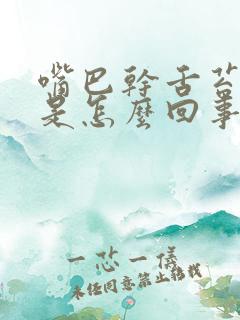 嘴巴幹舌苔
是怎麼回事
一芯一儀
未经同意禁止转载